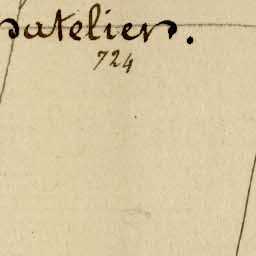 hatelier.
724